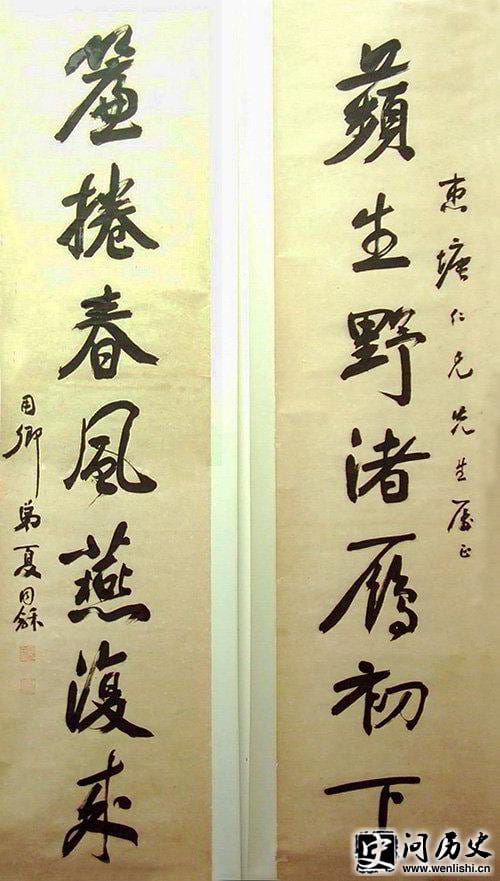 惠塘仁兄先生屬正
蘋生野渚鴈初下
簾捲春風燕復來
用卿弟夏同龢
问历史
www.wenlishi.cn